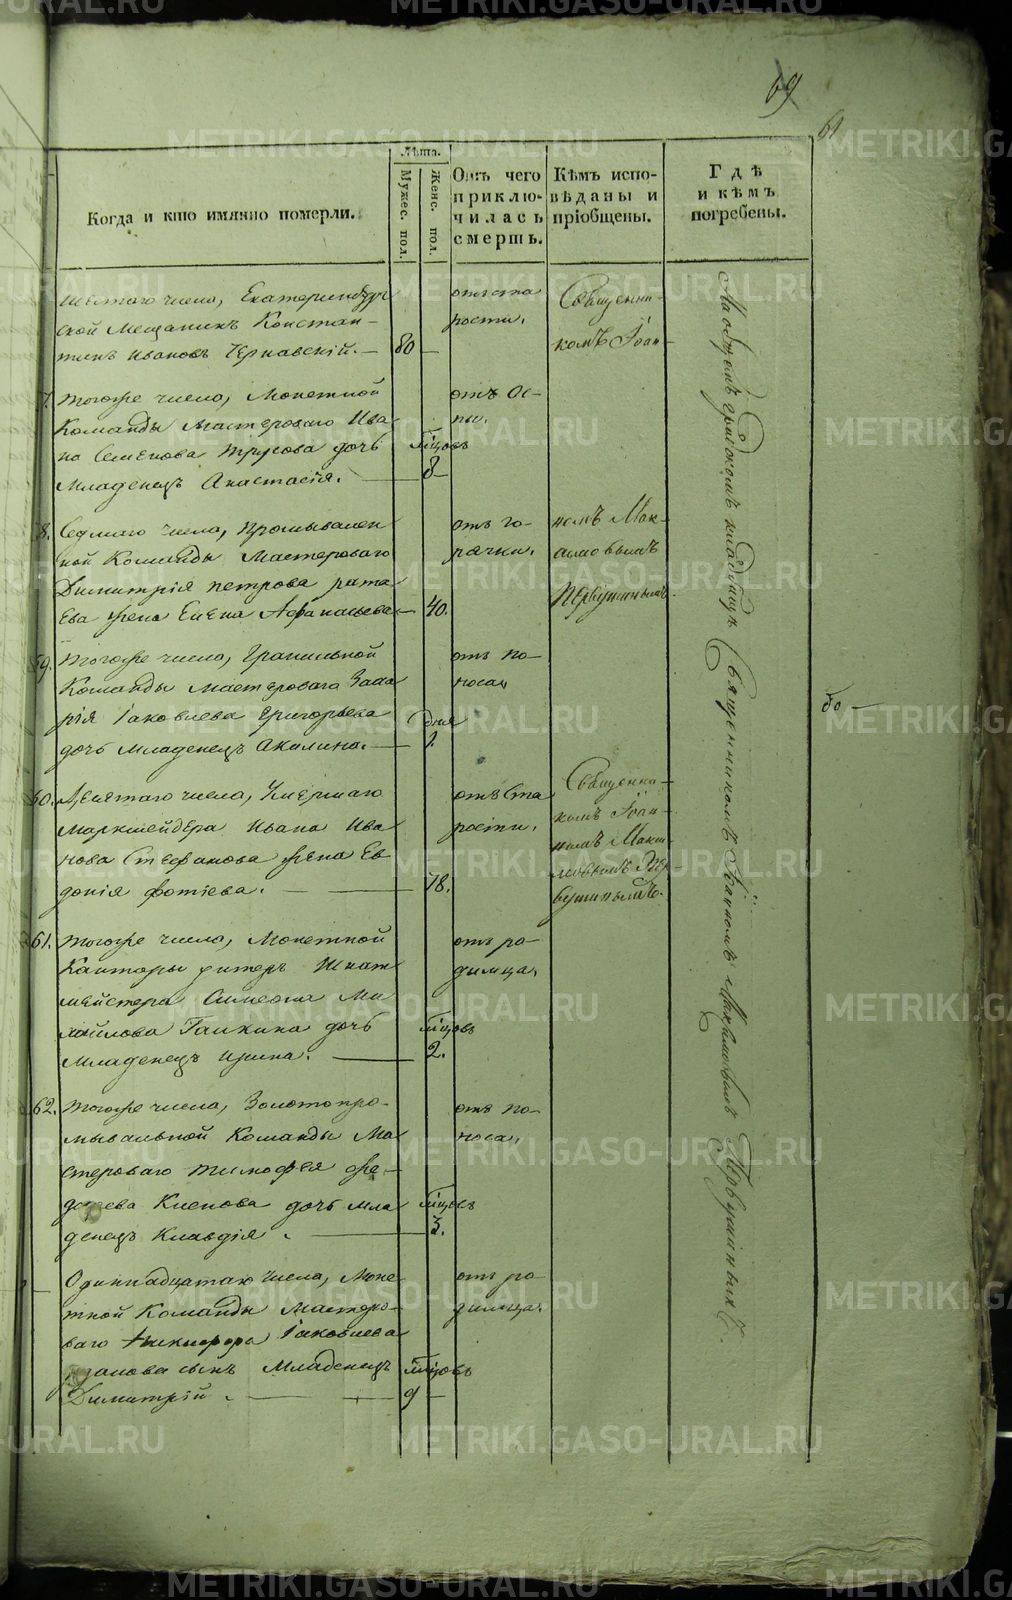 69
61
Когда и кто имянно померли.
Лѣта.
Мужес. пол.
Женс. пол.
Отъ чего приключилась смерть.
Кѣмъ исповѣданы и пріобщены.
Гдѣ и кѣмъ погребены.
Шестаго числа, Екатеринбург
ской Мещанинъ Констан-
тинъ Ивановъ Чернавскій. — 80 —
отъ ста
рости.
Священни-
комъ Іоан-
7. тогоже числа, Монетной
Команды Мастероваго Ива
на Семенова дочь
Младенецъ Анастасія. — м̃цовъ 8 —
отъ Ос-
пы.
8. Седмаго числа, Промывален
ной Команды Мастероваго
Димитрія Петрова рата
ева жена Елена Афанасьева — 40.
отъ го-
рячки.
номъ Мак-
симовымъ
Первушинымъ.
59. тогоже числа, Гранильной
Команды мастероваго Заха
рія Іаковлева Григорьева
дочь младенецъ Акилина. — дня 1.
отъ по-
носа
60. Девятаго числа, Умершаго
Маркшейдера Ивана Ива
нова Стефанова жена Ев
докія фотіева. — 78.
отъ Ста
рости.
Священни-
комъ Іоан-
номъ Макси
мовымъ Пер-
вушинымъ.
61. тогоже числа, Монетной
Канторы унтеръ Шихт
мейстера Симеона Ми
хайлова Галкина дочь
Младенецъ Ирина. — м̃цовъ 2.
отъ ро-
димца.
62. тогоже числа, Золотопро-
мывальной Команды Ма
стероваго тимофея фе-
дотова Кленова дочь мла
денецъ Клавдія. — м̃цовъ 3.
отъ по-
носа.
Одиннадцатаго числа, Моне
тной Команды Мастеро-
ваго Никифора Іаковлева
сынъ Младенецъ
Димитрій. — м̃цовъ 9 —
отъ ро-
димца.
На общемъ градскомъ кладбищѣ Священникомъ Іоанномъ Максимовымъ Первушинымъ.
50 —
METRIKI.GASO-URAL.RU